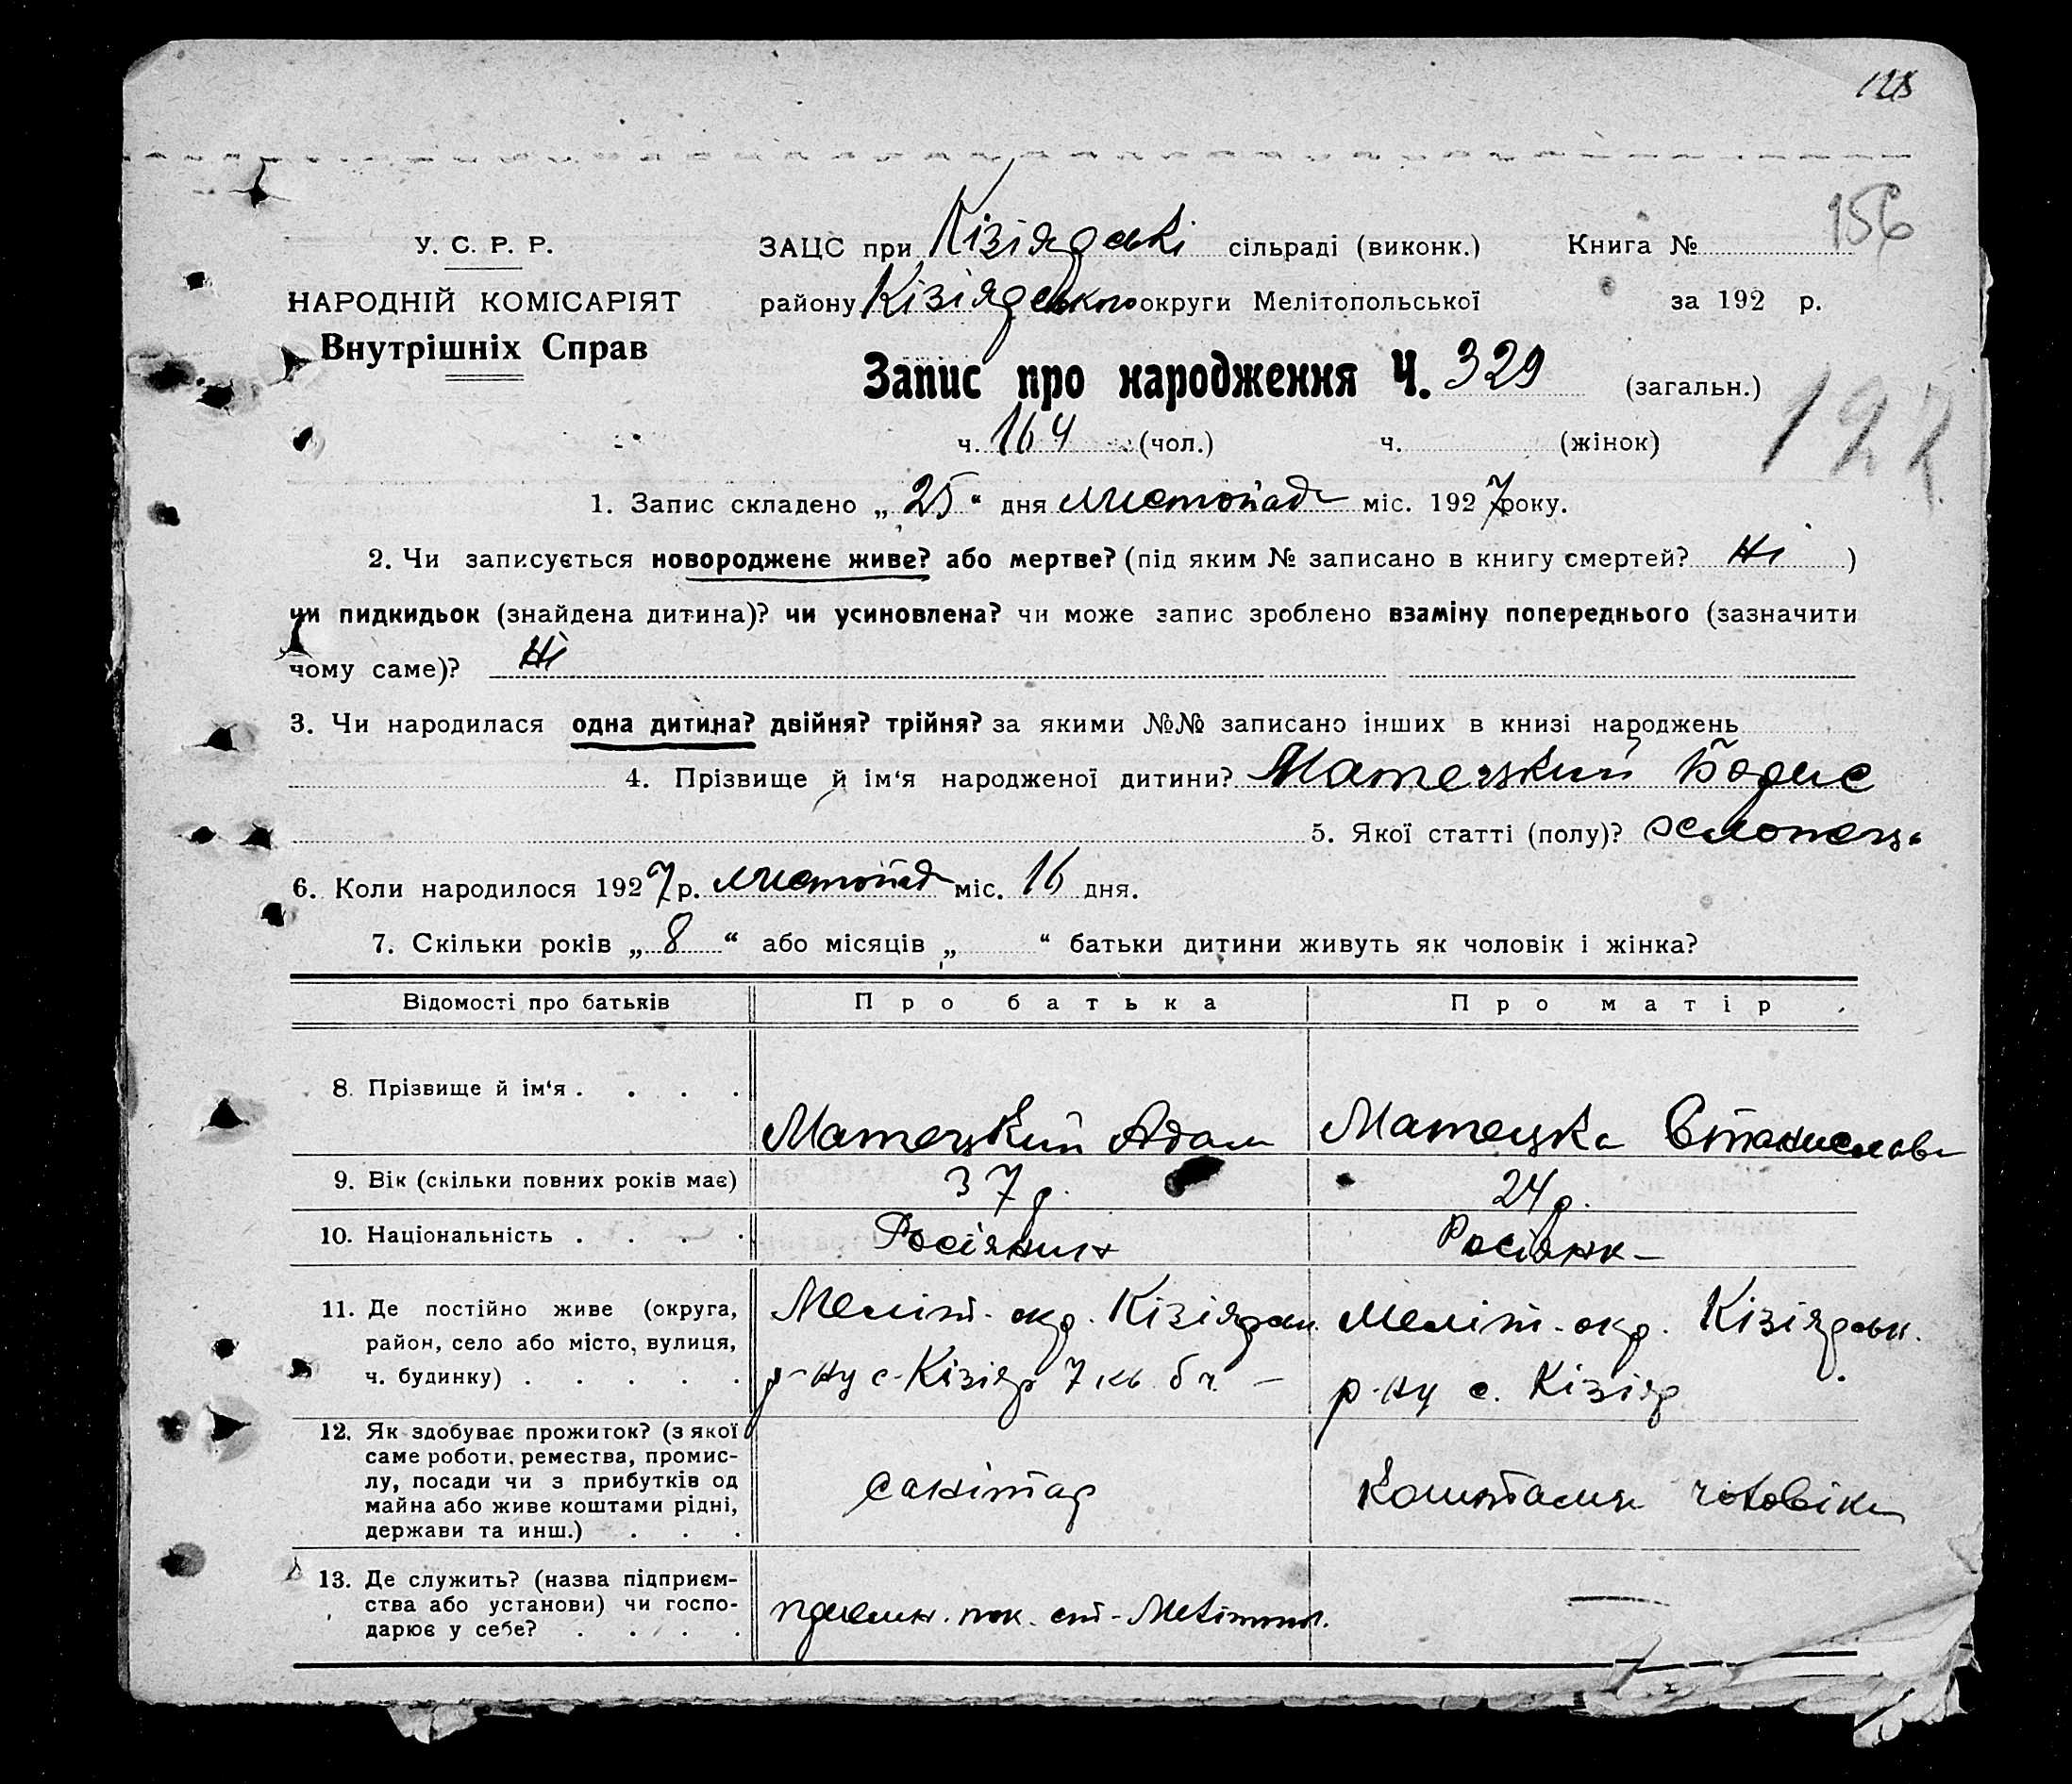 128
У. С. Р. Р.
ЗАЦС при Кізіярські сільраді (виконк.)
Книга №
156
НАРОДНІЙ КОМІСАРІЯТ
району Кізіярського округи Мелітопольської
за 192 р.
Внутрішніх Справ
Запис про народження Ч. 329 (загальн.)
ч. 164 (чол.) ч. (жінок)
1. Запис складено „ 25 “ дня листопада міс. 1927 року.
2. Чи записується новороджене живе? або мертве? (під яким № записано в книгу смертей? Ні )
чи пидкидьок (знайдена дитина)? чи усиновлена? чи може запис зроблено взаміну попереднього (зазначити
чому саме)? Ні
3. Чи народилася одна дитина? двійня? трійня? за якими №№ записано інших в книзі народжень
4. Прізвище й ім‘я народженої дитини? Матецкий Борис
5. Якої статті (полу)? хлопець
6. Коли народилося 1927 р. листопад міс. 16 дня.
7. Скільки років „ 8 “ або місяців „ “ батьки дитини живуть як чоловік і жінка?
Відомості про батьків
Про батька
Про матір
8. Прізвище й ім‘я . . . .
Матецкий Адам
Матецка Станислава
9. Вік (скільки повних років має)
37 р.
24 р.
10. Національність . . . .
Росіянин
Росіянка
11. Де постійно живе (округа,
район, село або місто, вулиця,
ч. будинку) . . . . .
Меліт. окр. Кізіярськ.
р-ну с. Кізіяр 7 кв. б ч. –
Меліт. окр. Кізіярськ.
р-ну с. Кізіяр
12. Як здобуває прожиток? (з якої
саме роботи, ремества, промис-
лу, посади чи з прибутків од
майна або живе коштами рідні,
держави та инш.) . . .
санітар
Коштами чоловіка
13. Де служить? (назва підприєм-
ства або установи) чи госпо-
дарює у себе? . . . .
приемн. пок. ст. Мелітопол.
—